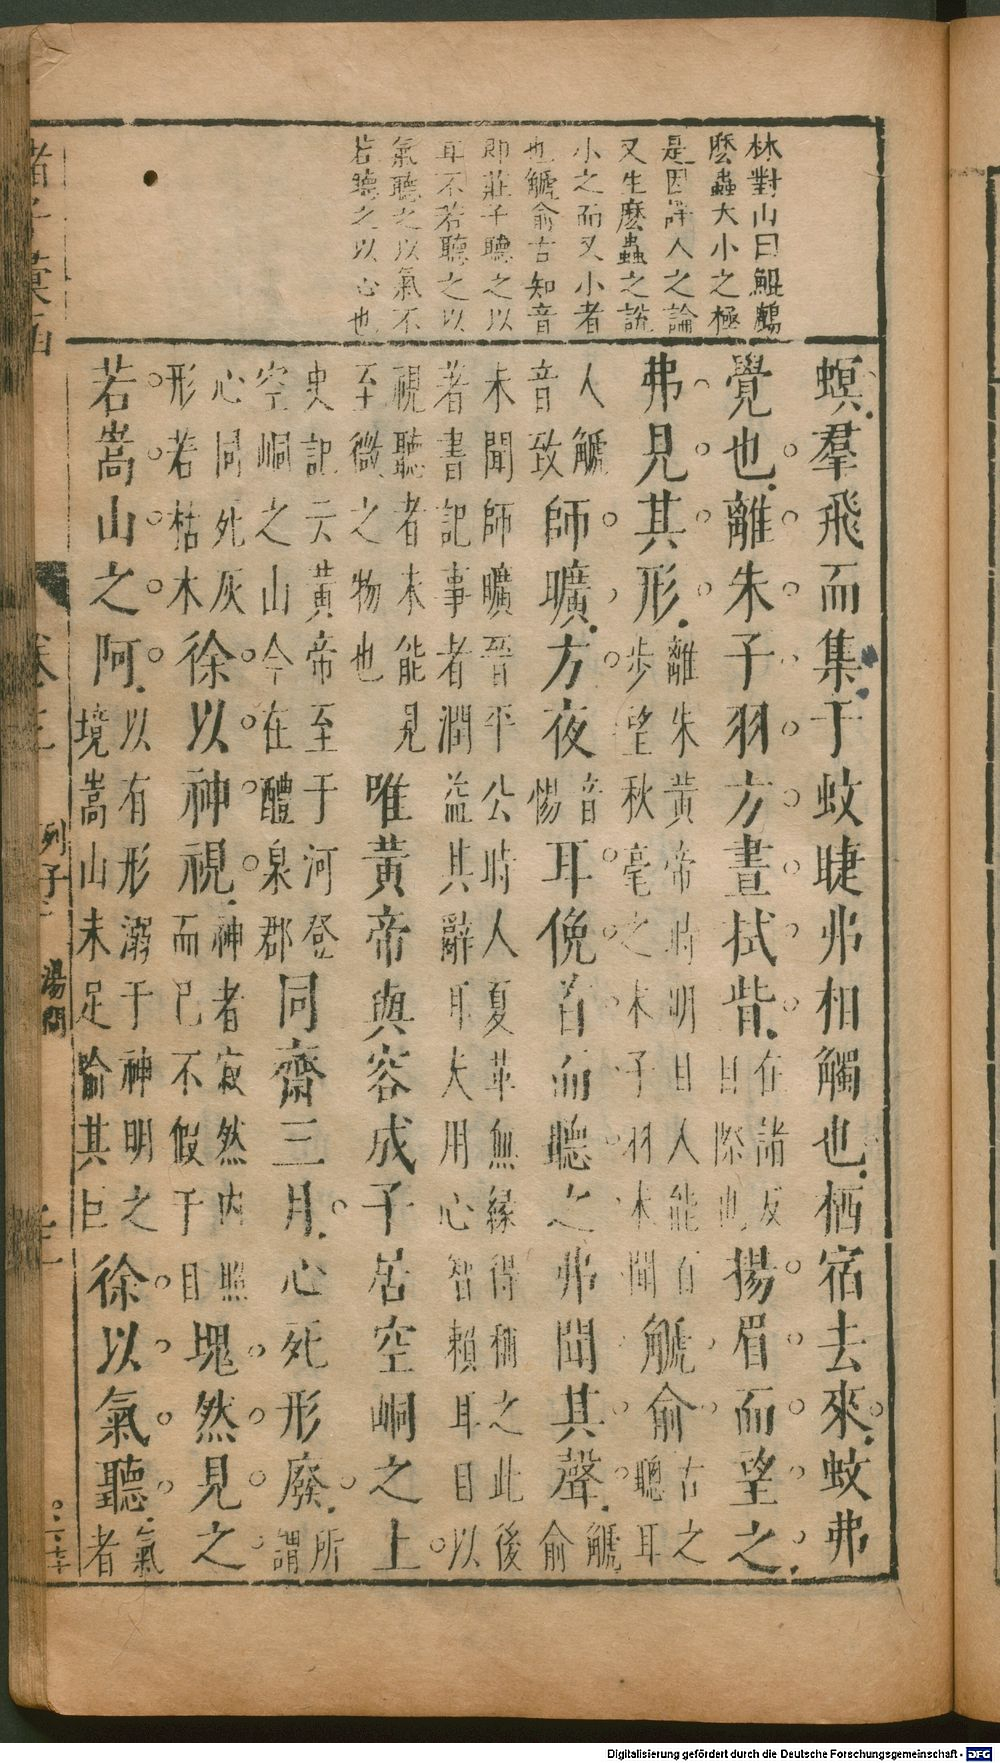 林對山曰鯤鵬
麽蟲大小之極
是因詳人之論
又生麽蟲之說
小之而又小者
也䚦俞古知音
即莊子聽之以
耳不若聽之以
氣聽之以氣不
若聽之以心也
螟羣飛而集于蚊睫弗相觸也栖宿去來蚊弗
覺也離朱子羽方晝拭眥在諸反目際也揚眉而望之
弗見其形離朱黃帝時明目人能百步望秋毫之末子羽未聞䚦俞古之聰耳
人䚦音致師曠方夜音惕耳俛首而聽之弗聞其聲䚦俞
未聞師曠晉平公時人夏革無緣得稱之此後著書記事者潤益其辭耳夫用心智賴耳目以
視聽者未能見至微之物也唯黃帝與容成子居空峒之上
史記云黃帝至于河登空峒之山今在醴泉郡同齋三月心死形廢所謂
心同死灰形若枯木徐以神視神者寂然內照而已不假于目塊然見之
若嵩山之阿以有形溺于神明之境嵩山未足喻其巨徐以氣聽氣者
列子
湯問
Digitalisierung gefördert durch die Deutsche Forschungsgemeinschaft - DFG